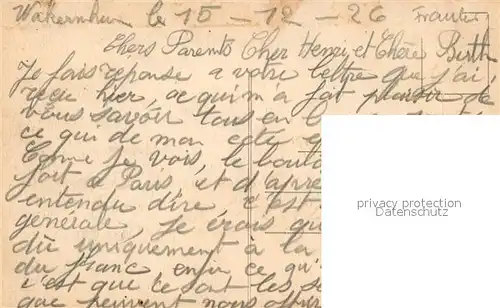 Wakernheim le 15 - 12 - 26
Chers Parents Cher Henri et Chère Berth
Je fais réponse a votre lettre que j'ai
reçu hier, ce qui m'a fait plaisir de
vous savoir tous en b
ce qui de mon coté e
Come je vois, le boulo
fort a Paris, et d'apre
entendu dire c'est
generale, Je crois qu
dû uniquement à la
du franc enfin ce qu'
c'est que ce sont les
que peuvent nous offrir
privacy protection
Datenschutz